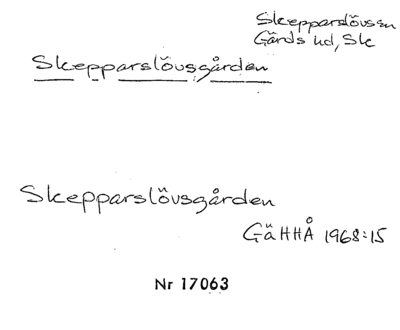 Skepparslövs sn
Gärds hd, Sk
Skepparslövsgården
Skepparslövsgården
GäHHÅ 1968:15
Nr 17063